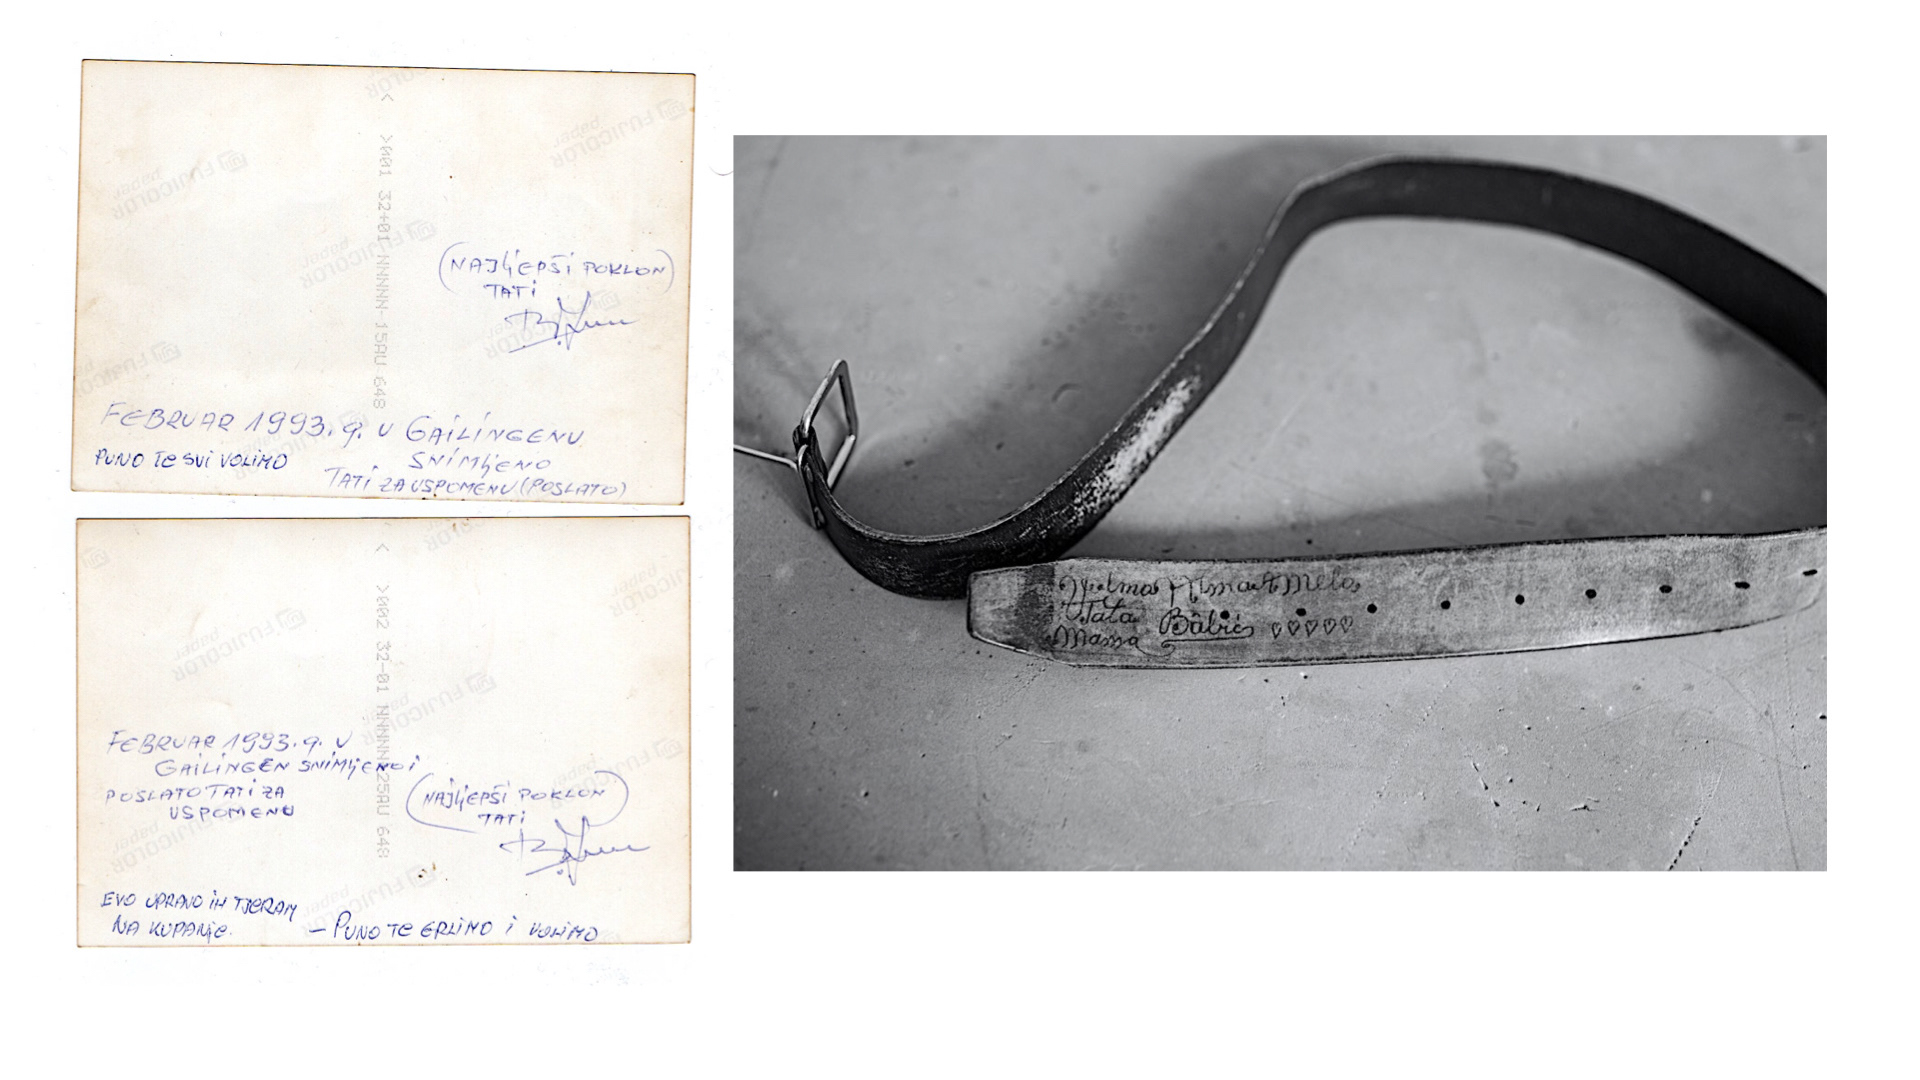 (NAJLJEPŠI POKLON)
TATI
FEBRUAR 1993. g. U GAILINGENU
SNIMLJENO
PUNO TE SVI VOLIMO
TATI ZA USPOMENU (POSLATO)
>001 32+01 NNNNN-15AU 648
FUJICOLOR
paper
FEBRUAR 1993. g. U
GAILINGEN SNIMLJENO i
POSLATO TATI ZA
USPOMENU
(NAJLJEPŠI POKLON)
TATI
EVO UPRAVO IH TJERAM
NA KUPANJE.
– PUNO TE GRLIMO i VOLIMO
>002 32-01 NNNNN-25AU 648
FUJICOLOR
paper
Melo
Tata Babić
Mama